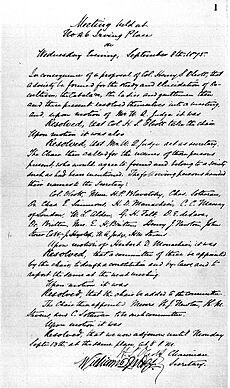 1
Meeting held at
No 46 Irving Place
on
Wednesday Evening, September 8th 1875.
In consequence of a proposal of Col. Henry S. Olcott, that
a Society be formed for the study and elucidation of Oc-
cultism, the Cabala &c, the ladies and gentlemen then
and there present resolved themselves into a meeting
and upon motion of Mr W. Q. Judge it was
Resolved, that Col. H. S. Olcott take the chair.
Upon motion it was also
Resolved, that Mr W. Q. Judge act as secretary.
The Chair then called for the names of those persons
present, who would agree to found and belong to a Society
such as had been mentioned. The following persons handed
their names to the Secretary:
Col. Olcott, Mme. H. P. Blavatsky, Chas. Sotheran,
Dr. Chas. E. Simmons, H. D. Monachesi, C. C. Massey
of London, W. L. Alden, G. H. Felt, D. E. de Lara,
Dr. Britten, Mrs. E. H. Britten, Henry J. Newton, John
Storer Cobb, J. Hyslop, W. Q. Judge, H. M. Stevens.
Upon motion of Herbert D. Monachesi, it was
Resolved, that a committee of three be appointed
by the chair, to draft a constitution and by-laws, and to
report the same at the next meeting.
Upon motion it was
Resolved, that the chair be added to the committee.
The Chair then appointed Messrs. H. J. Newton, H. M.
Stevens, and C. Sotheran to be such committee.
Upon motion it was
Resolved, that we now adjourn until Monday
Sept. 13th at the same place, at 8 P.M.
Chairman
Secretary.